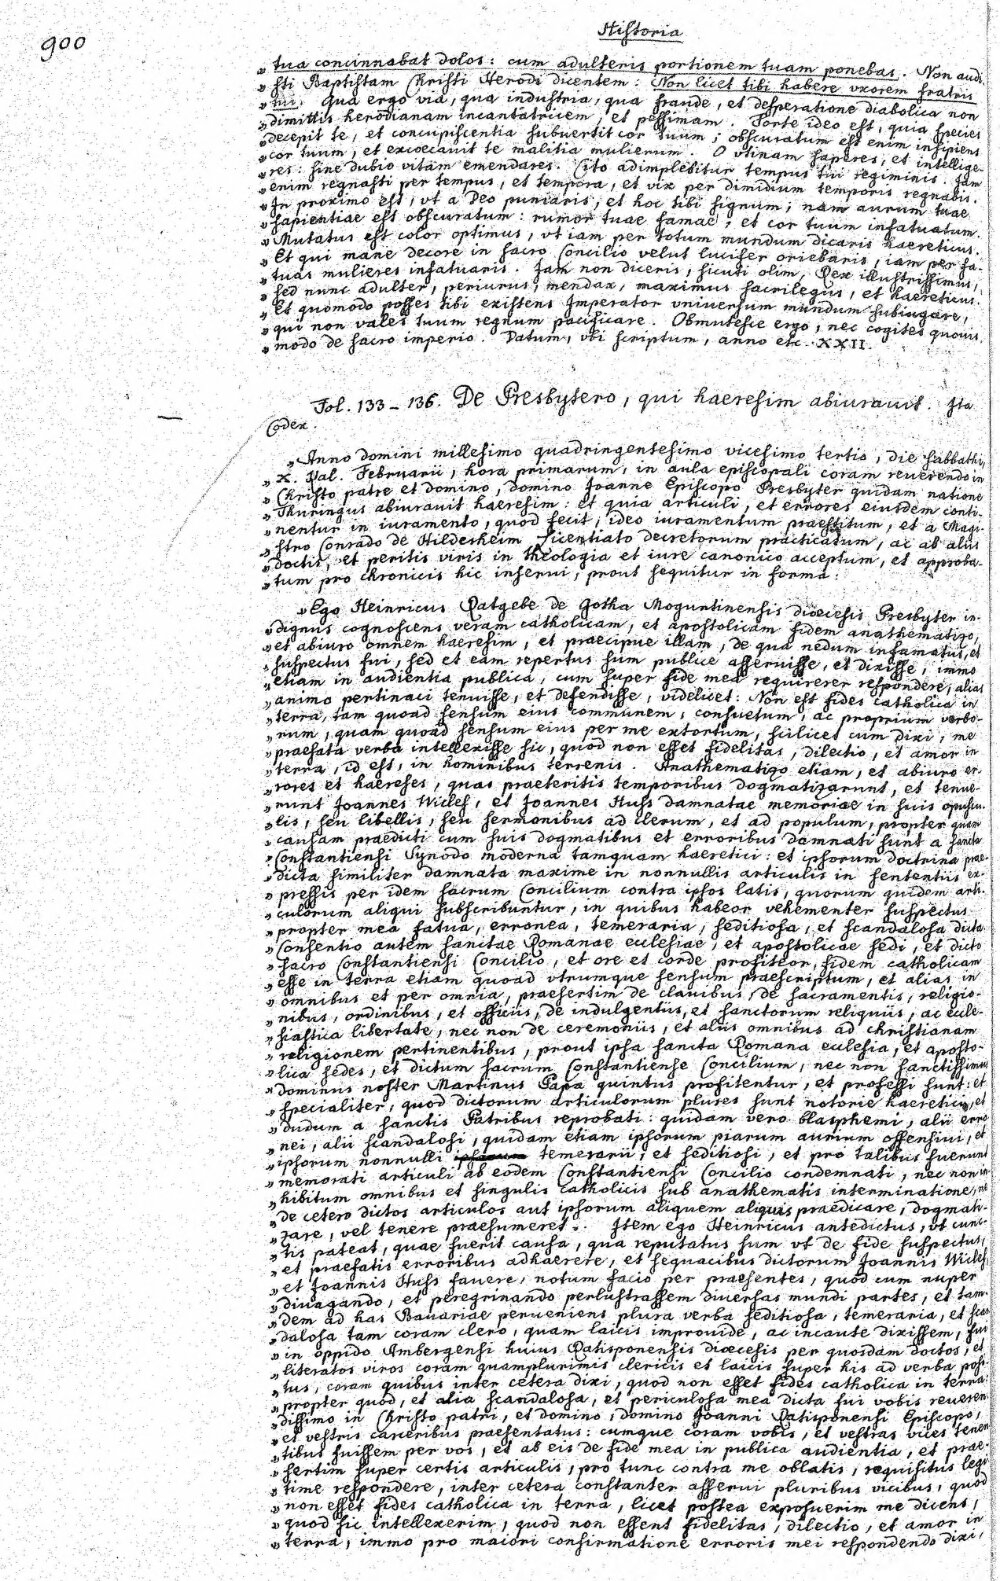 900
Historia
„ tua concinnabat dolos: cum adulteris portionem tuam ponebas. Non audi-
„ sti Baptistam Christi Herodi dicentem: Non licet tibi habere vxorem fratris
„ tui. Qua ergo via, qua industria, qua fraude, et desperatione diabolica non
„ dimittis herodianam incantatricem, et pessimam. Forte ideo est, quia species
„ decepit te, et concupiscentia subuertit cor tuum; obscuratum est enim insipiens
„ cor tuum, et excoecauit te malitia mulierum. O vtinam saperes, et intellige-
„ res: sine dubio vitam emendares. Cito adimplebitur tempus tui regiminis. Jam
„ enim regnasti per tempus, et tempora, et vix per dimidium temporis regnabis.
„ In proximo est, vt a Deo puniaris, et hoc tibi signum; nam aurum tuae
„ sapientiae est obscuratum: rumor tuae famae, et cor tuum infatuatum.
„ Mutatus est color optimus, vt iam per totum mundum dicaris haereticus.
„ Et qui mane decore in sacro Concilio velut lucifer oriebaris, iam per fa-
„ tuas mulieres infatuaris. Jam non diceris, sicuti olim, Rex illustrissimus,
„ sed nunc adulter, periurus, mendax, maximus sacrilegus, et haereticus.
„ Et quomodo posses tibi existens Imperator vniuersum mundum subiugare,
„ qui non vales tuum regnum pacificare. Obmutesce ergo, nec cogites quouis
„ modo de sacro imperio. Datum, vbi scriptum, anno etc. XXII.
Fol. 133–136. De Presbytero, qui haeresim abiurauit. Ita
Codex.
„ Anno domini millesimo quadringentesimo vicesimo tertio, die Sabbathi,
„ X. Kal. Februarii, hora primarum, in aula episcopali coram reuerendo in
„ Christo patre et domino, domino Joanne Episcopo Presbyter quidam natione
„ Thuringus abiurauit haeresim: et quia articuli, et errores eiusdem conti-
„ nentur in iuramento, quod fecit, ideo iuramentum praestitum, et a Magi-
„ stro Conrado de Hildesheim Licentiato decretorum practicatum, ac ab aliis
„ doctis, et peritis viris in theologia et iure canonico acceptum, et approba-
„ tum pro chronicis hic inserui, prout sequitur in forma:
„ Ego Heinricus Ratgebe de Gotha Moguntinensis dioecesis Presbyter in-
„ dignus cognoscens veram catholicam, et apostolicam fidem anathematizo,
„ et abiuro omnem haeresim, et praecipue illam, de qua nedum infamatus, et
„ suspectus fui, sed et eam repertus sum publice asseruisse, et dixisse, immo
„ etiam in audientia publica, cum super fide mea requirerer respondere, alias
„ animo pertinaci tenuisse, et defendisse, videlicet: Non est fides catholica in
„ terra, tam quoad sensum eius communem, consuetum, ac proprium verbo-
„ rum, quam quoad sensum eius per me extortum, scilicet cum dixi, me
„ praefata verba intellexisse sic, quod non esset fidelitas, dilectio, et amor in
„ terra, id est, in hominibus terrenis. Anathematizo etiam, et abiuro er-
„ rores et haereses, quas praeteritis temporibus dogmatizarunt, et tenue-
„ runt Joannes Wiclef, et Joannes Huss damnatae memoriae in suis opuscu-
„ lis, seu libellis, seu sermonibus ad clerum, et ad populum, propter quam
„ causam praedicti cum suis dogmatibus et erroribus damnati sunt a sancta
„ Constantiensi Synodo moderna tamquam haeretici: et ipsorum doctrina prae-
„ dicta similiter damnata maxime in nonnullis articulis in sententiis ex-
„ pressis per idem sacrum Concilium contra ipsos latis, quorum quidem arti-
„ culorum aliqui subscribuntur, in quibus habeor vehementer suspectus
„ propter mea fatua, erronea, temeraria, seditiosa, et scandalosa dicta.
„ Consentio autem sanctae Romanae ecclesiae, et apostolicae sedi, et dicto
„ sacro Constantiensi Concilio, et ore et corde profiteor, fidem catholicam
„ esse in terra etiam quoad vtrumque sensum praescriptum, et alias in
„ omnibus et per omnia, praesertim de clauibus, de sacramentis, religio-
„ nibus, ordinibus, et officiis, de indulgentiis, et sanctorum reliquiis, ac eccle-
„ siastica libertate, nec non de ceremoniis, et aliis omnibus ad christianam
„ religionem pertinentibus, prout ipsa sancta Romana ecclesia, et aposto-
„ lica sedes, et dictum sacrum Constantiense Concilium, nec non sanctissimus
„ dominus noster Martinus Papa quintus profitentur, et professi sunt: et
„ specialiter, quod dictorum articulorum plures sunt notorie haeretici, et
„ dudum a sanctis Patribus reprobati: quidam vero blasphemi, alii erro-
„ nei, alii scandalosi, quidam etiam ipsorum piarum aurium offensiui, et
„ ipsorum nonnulli temerarii, et seditiosi, et pro talibus fuerunt
„ memorati articuli ab eodem Constantiensi Concilio condemnati, nec non in-
„ hibitum omnibus et singulis catholicis sub anathematis interminatione, ne
„ de cetero dictos articulos aut ipsorum aliquem aliquis praedicare, dogmati-
„ zare, vel tenere praesumeret. Item ego Heinricus antedictus, vt cunc-
„ tis pateat, quae fuerit causa, qua reputatus sum vt de fide suspectus,
„ et praefatis erroribus adhaerere, et sequacibus dictorum Joannis Wiclef,
„ et Joannis Huss fauere, notum facio per praesentes, quod cum nuper
„ diuagando, et peregrinando perlustrassem diuersas mundi partes, et tan-
„ dem ad has Bauariae perueniens plura verba seditiosa, temeraria, et scan-
„ dalosa tam coram clero, quam laicis improuide, ac incaute dixissem, fui
„ in oppido Ambergensi huius Ratisponensis dioecesis per quosdam doctos, et
„ literatos viros coram quamplurimis clericis et laicis super his ad verba posi-
„ tus, coram quibus inter cetera dixi, quod non esset fides catholica in terra:
„ propter quod, et alia scandalosa, et periculosa mea dicta fui vobis reueren-
„ dissimo in Christo patri, et domino, domino Joanni Ratisponensi Episcopo,
„ et vestris carceribus praesentatus: cumque coram vobis, et vestras vices tenen-
„ tibus fuissem per vos, et ab eis de fide mea in publica audientia, et prae-
„ sertim super certis articulis, pro tunc contra me oblatis, requisitus legi-
„ time respondere, inter cetera constanter asserui pluribus vicibus, quod
„ non esset fides catholica in terra, licet postea exposuerim me dicens,
„ quod sic intellexerim, quod non essent fidelitas, dilectio, et amor in
„ terra, immo pro maiori confirmatione erroris mei respondendo dixi,